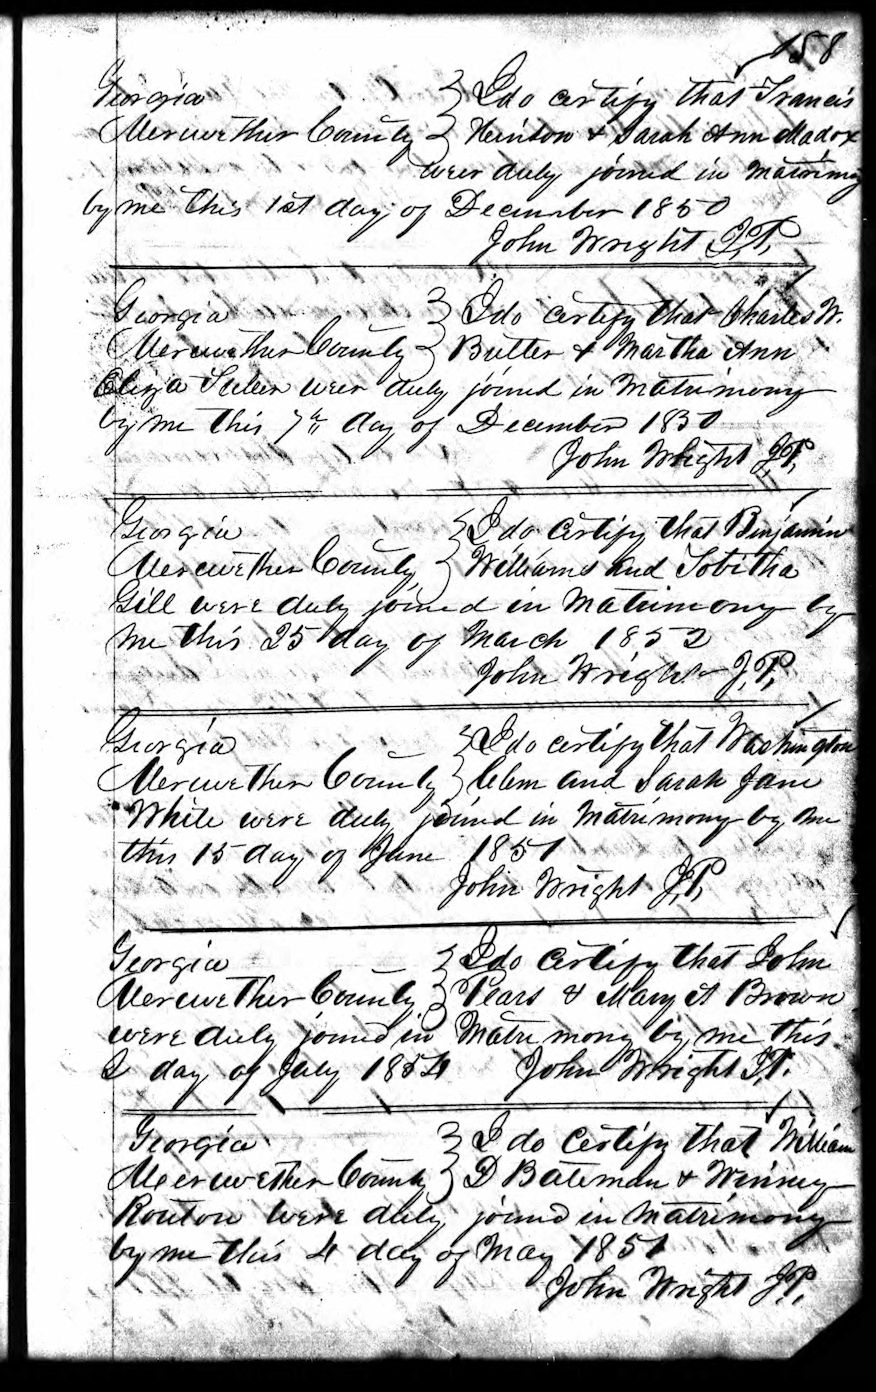 158
Georgia } I do certify that Francis
Meruwether County } Heinton & Sarah Ann Madox
weer duly joined in matrimony
by me this 1st day of December 1850
John Wright J.P.
Georgia } I do certify that Charles W.
Meruwether County } Butler & Martha Ann
Eliza weer duly joined in Matrimony
by me this 7th day of December 1850
John Wright J.P.
Georgia } I do certify that Binjamin
Meruwether County } Williams and Tobitha
Gill were duly joined in Matrimony by
me this 25 day of March 1852
John Wright J.P.
Georgia } I do certify that Washington
Meruwether County } Clem and Sarah Jane
White were duly joined in Matrimony by me
this 15 day of June 1851
John Wright J.P.
Georgia } I do certify that John
Meruwether County } Pears & Mary A Brown
were duly joined in Matrimony by me this
2 day of July 1854 John Wright J.P.
Georgia } I do certify that William
Meeruwether County } D Bateman & Winney
Routon were duly joined in Matrimony
by me this 4 day of May 1851
John Wright J.P.